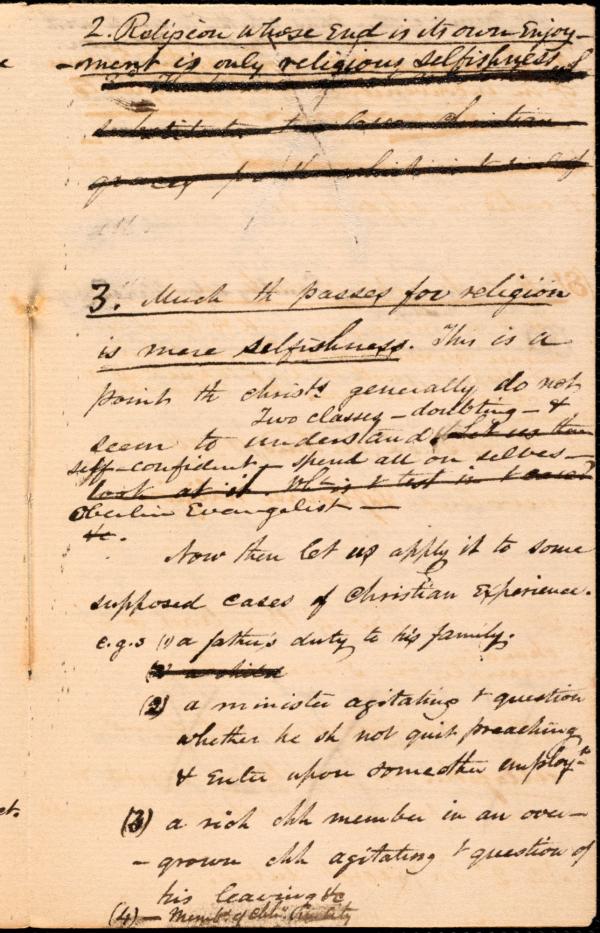 2. Religion whose End is its own Enjoy-
-ment is only religious selfishness.
3. Much th passes for religion
is mere selfishness. This is a
point th christs generally do not
Two classes – doubting – &
seem to understand. Let us then
self-confident – spend all on selves –
look at it. Wh is t test in t
Oberlin Evangelist –
&c.
Now then let us apply it to some
supposed cases of Christian Experience.
e.g.s (1) a father's duty to his family.
(2) a child
(2) a minister agitating t question
whether he sh not quit preaching
& Enter upon some other employ-
(3) a rich chh member in an over-
-grown chh agitating t question of
his leaving &c
(4) – Memb. of chh in city
ct.